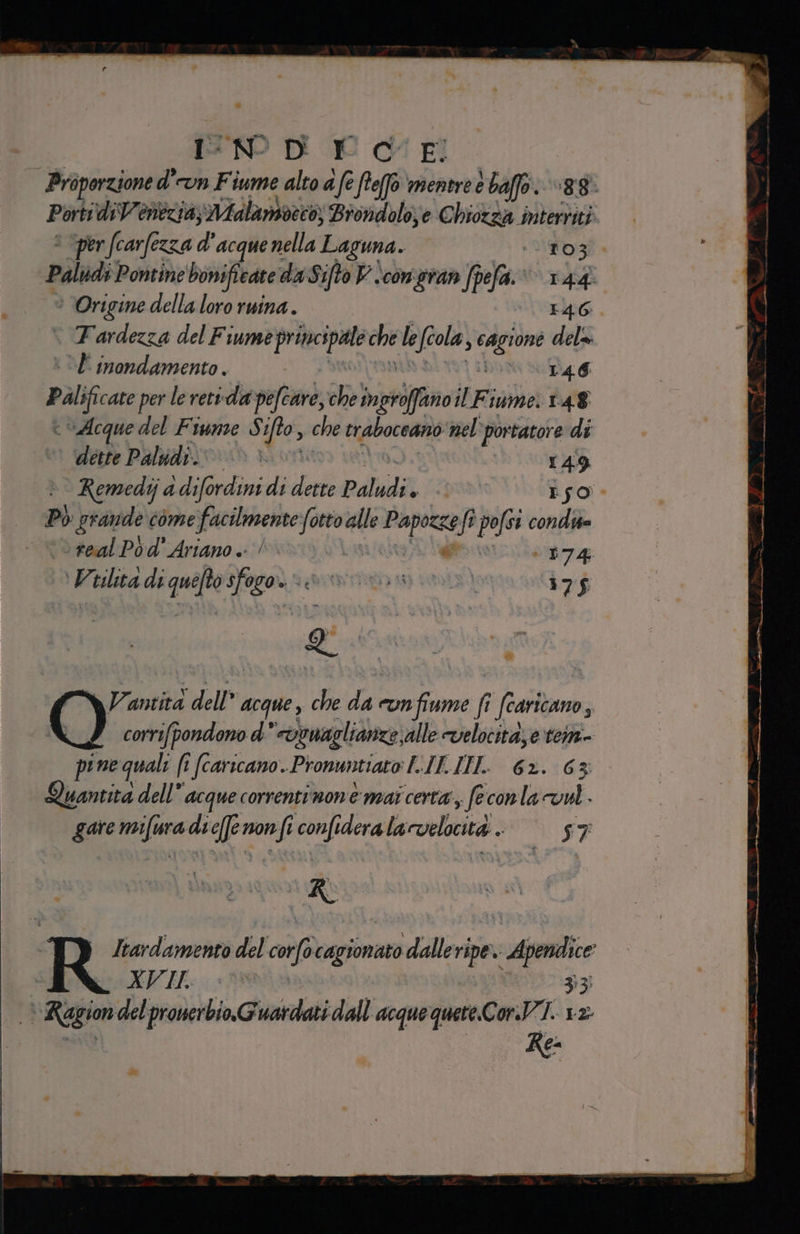 INDICE.
Proporzione d'vn Fiume alto a se stesso mentre è basso. 88
Porti di Venezia, Malamocco, Brondolo, e Chiozza interriti
per scarsezza d'acque nella Laguna. 103
Paludi Pontine bonificate da Sisto V. con gran spesa. 144
Origine della loro ruina. 146
Tardezza del Fiume principale che le scola, cagione del-
l'inondamento. 146
Palificate per le reti da pescare, che ingrossano il Fiume. 148
Acque del Fiume Sisto, che traboccano nel portatore di
dette Paludi. 149
Remedij a disordini di dette Paludi. 150
Pò grande come facilmente sotto alle Papozze si possi condu-
real Pò d'Ariano. 174
Vtilità di questo sfogo. 175
Q
QVantità dell' acque, che da vn fiume si scaricano,
corrispondono d'vguaglianze, alle velocità, e tem-
pi ne quali si scaricano. Pronuntiato I. II. III. 62. 63
Quantità dell' acque correnti non è mai certa, se con la vul-
gare misura di esse non si considera la velocità. 57
R
RItardamento del corso cagionato dalle ripe. Apendice
XVII. 33
Ragion del prouerbio, Guardati dall acque quete. Cor. VI. 12
Re-